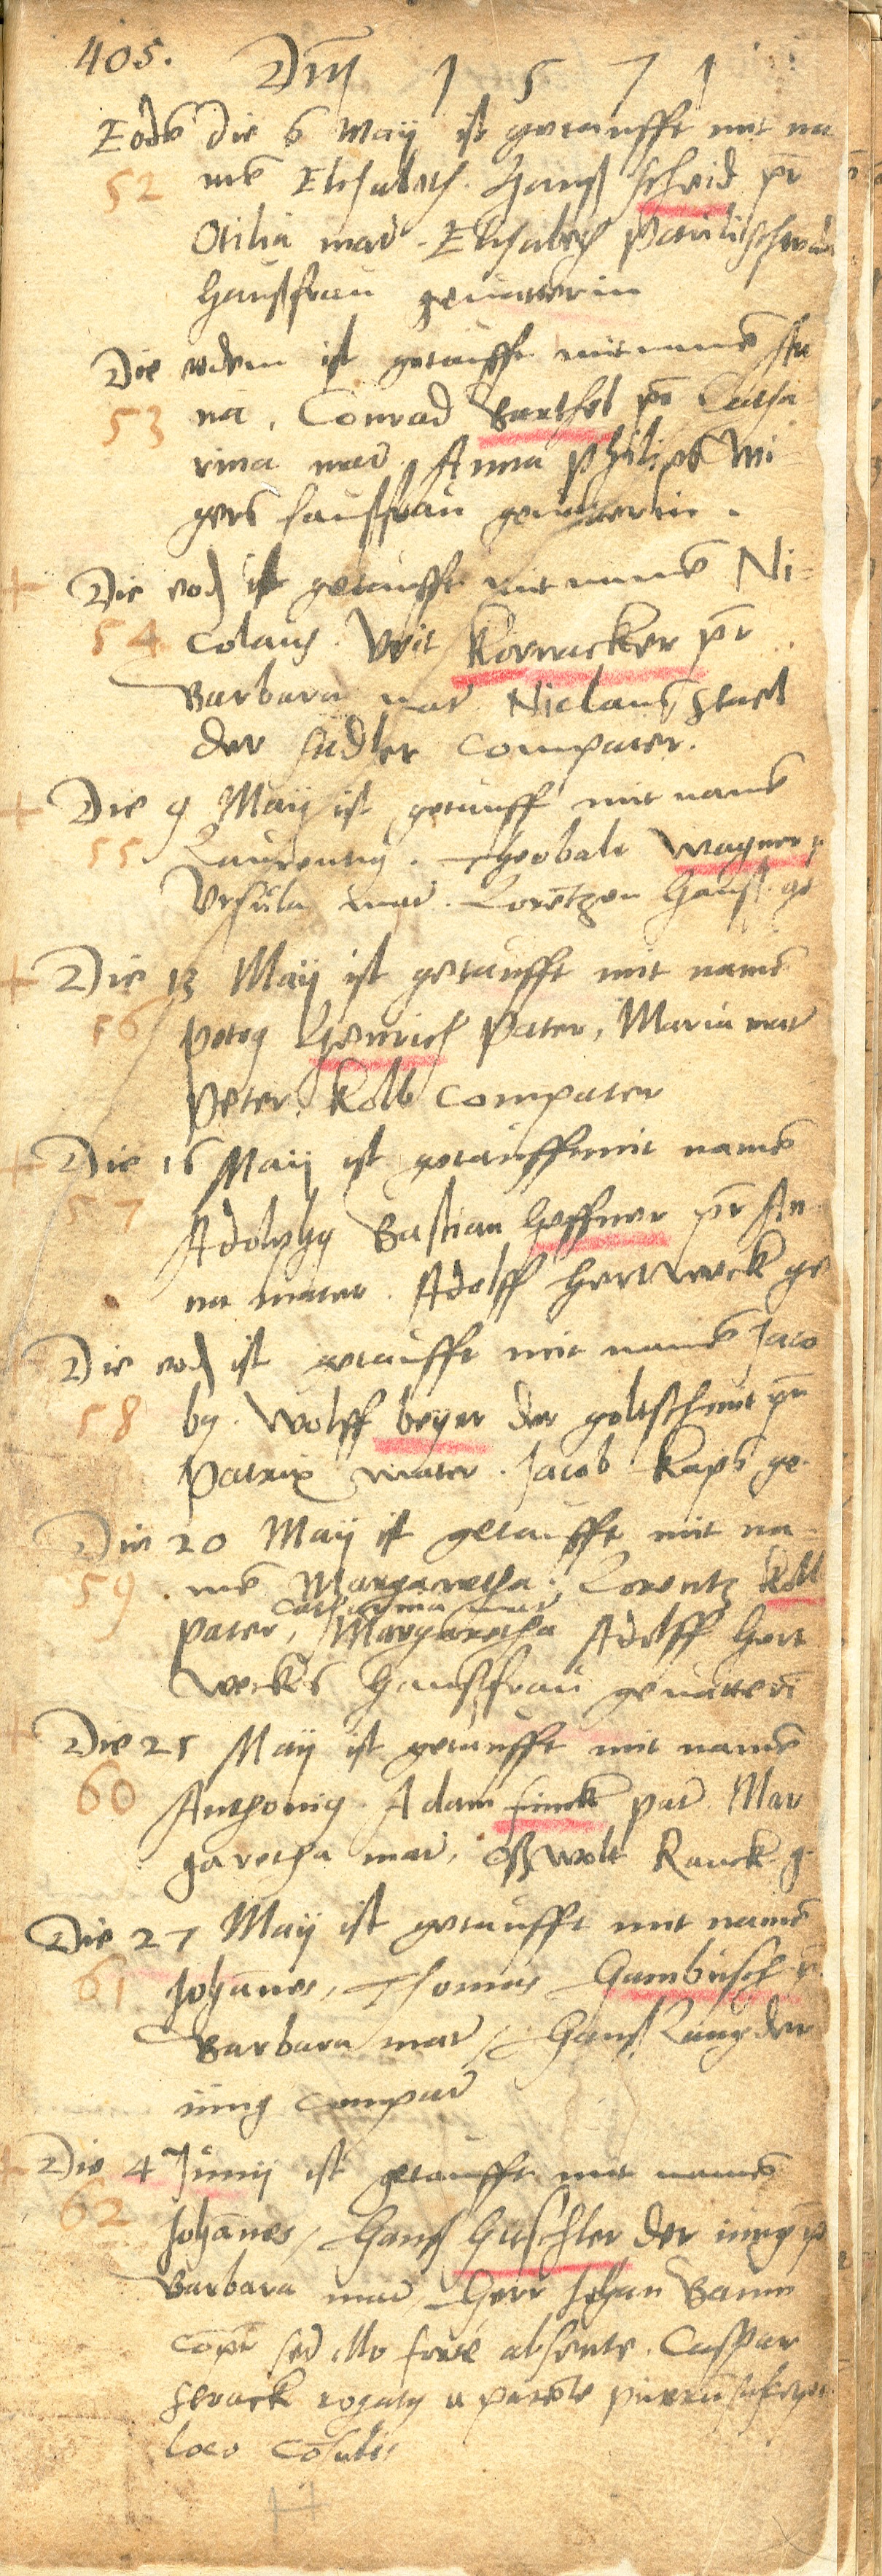 405. Dm̃ 1571
Eodē die 6 Maij ist getaufft mit na
52 mē Elisabeth. Hanß Scheid pr̄
Otilia mat̄. Elisabeth
haußfrau gevatterin
Die eodem ist getaufft mit namē An
53 na, Conrad Barthel pr̄ Catha
rina mat̄. Anna Philips Mi
gers haußfrau gevatterin.
Die eod ist getaufft mit namē Ni-
54 colaus. Veit Kornacker pr̄
Barbara mat̄ Niclaus
der compater.
Die 9 Maij ist getauff mit namē
55 Laurentiꝰ. Theobalt Wagner p
Ursula mat̄. Lorētzen Hanß ge
Die 13 Maij ist getaufft mit namē
56 Petrꝰ Henrich Pater, Maria mat̄
Peter Kolb compater
Die 16 Maij ist getaufft mit namē
57 Adolphꝰ Bastian Heffner pr̄ An-
na mater. Adolff Hertweck ge
Die eod ist getaufft mit namē Jaco
58 bꝰ. Wolff beyer der goltschmit pr̄
Patrix mater. Jacob Kaps ge.
Die 20 Maij ist getaufft mit na-
59 mē Margaretha. Lorentz Koll
Catharina mat̄
pater, Margaretha Adolff Hert
wecks Haußfrau gevatterī
Die 25 Maij ist getaufft mit namē
60 Anthoniꝰ. Adam Finck pat̄ Mar
garetha mat̄, Oßwolt Ranck g
Die 27 Maij ist getaufft mit namē
61 Johānes, Thomas Gambisch p̄
Barbara mat̄, Hanß Lang der
iung compat̄
Die 4 Junij ist getaufft mit namē
62 Johānes, Hanß Hirschler der iung p
Barbara mat̄ Herr Johan
compr̄ sed illo forte absente. Caspar
rogatꝰ a parēte puerū
loco